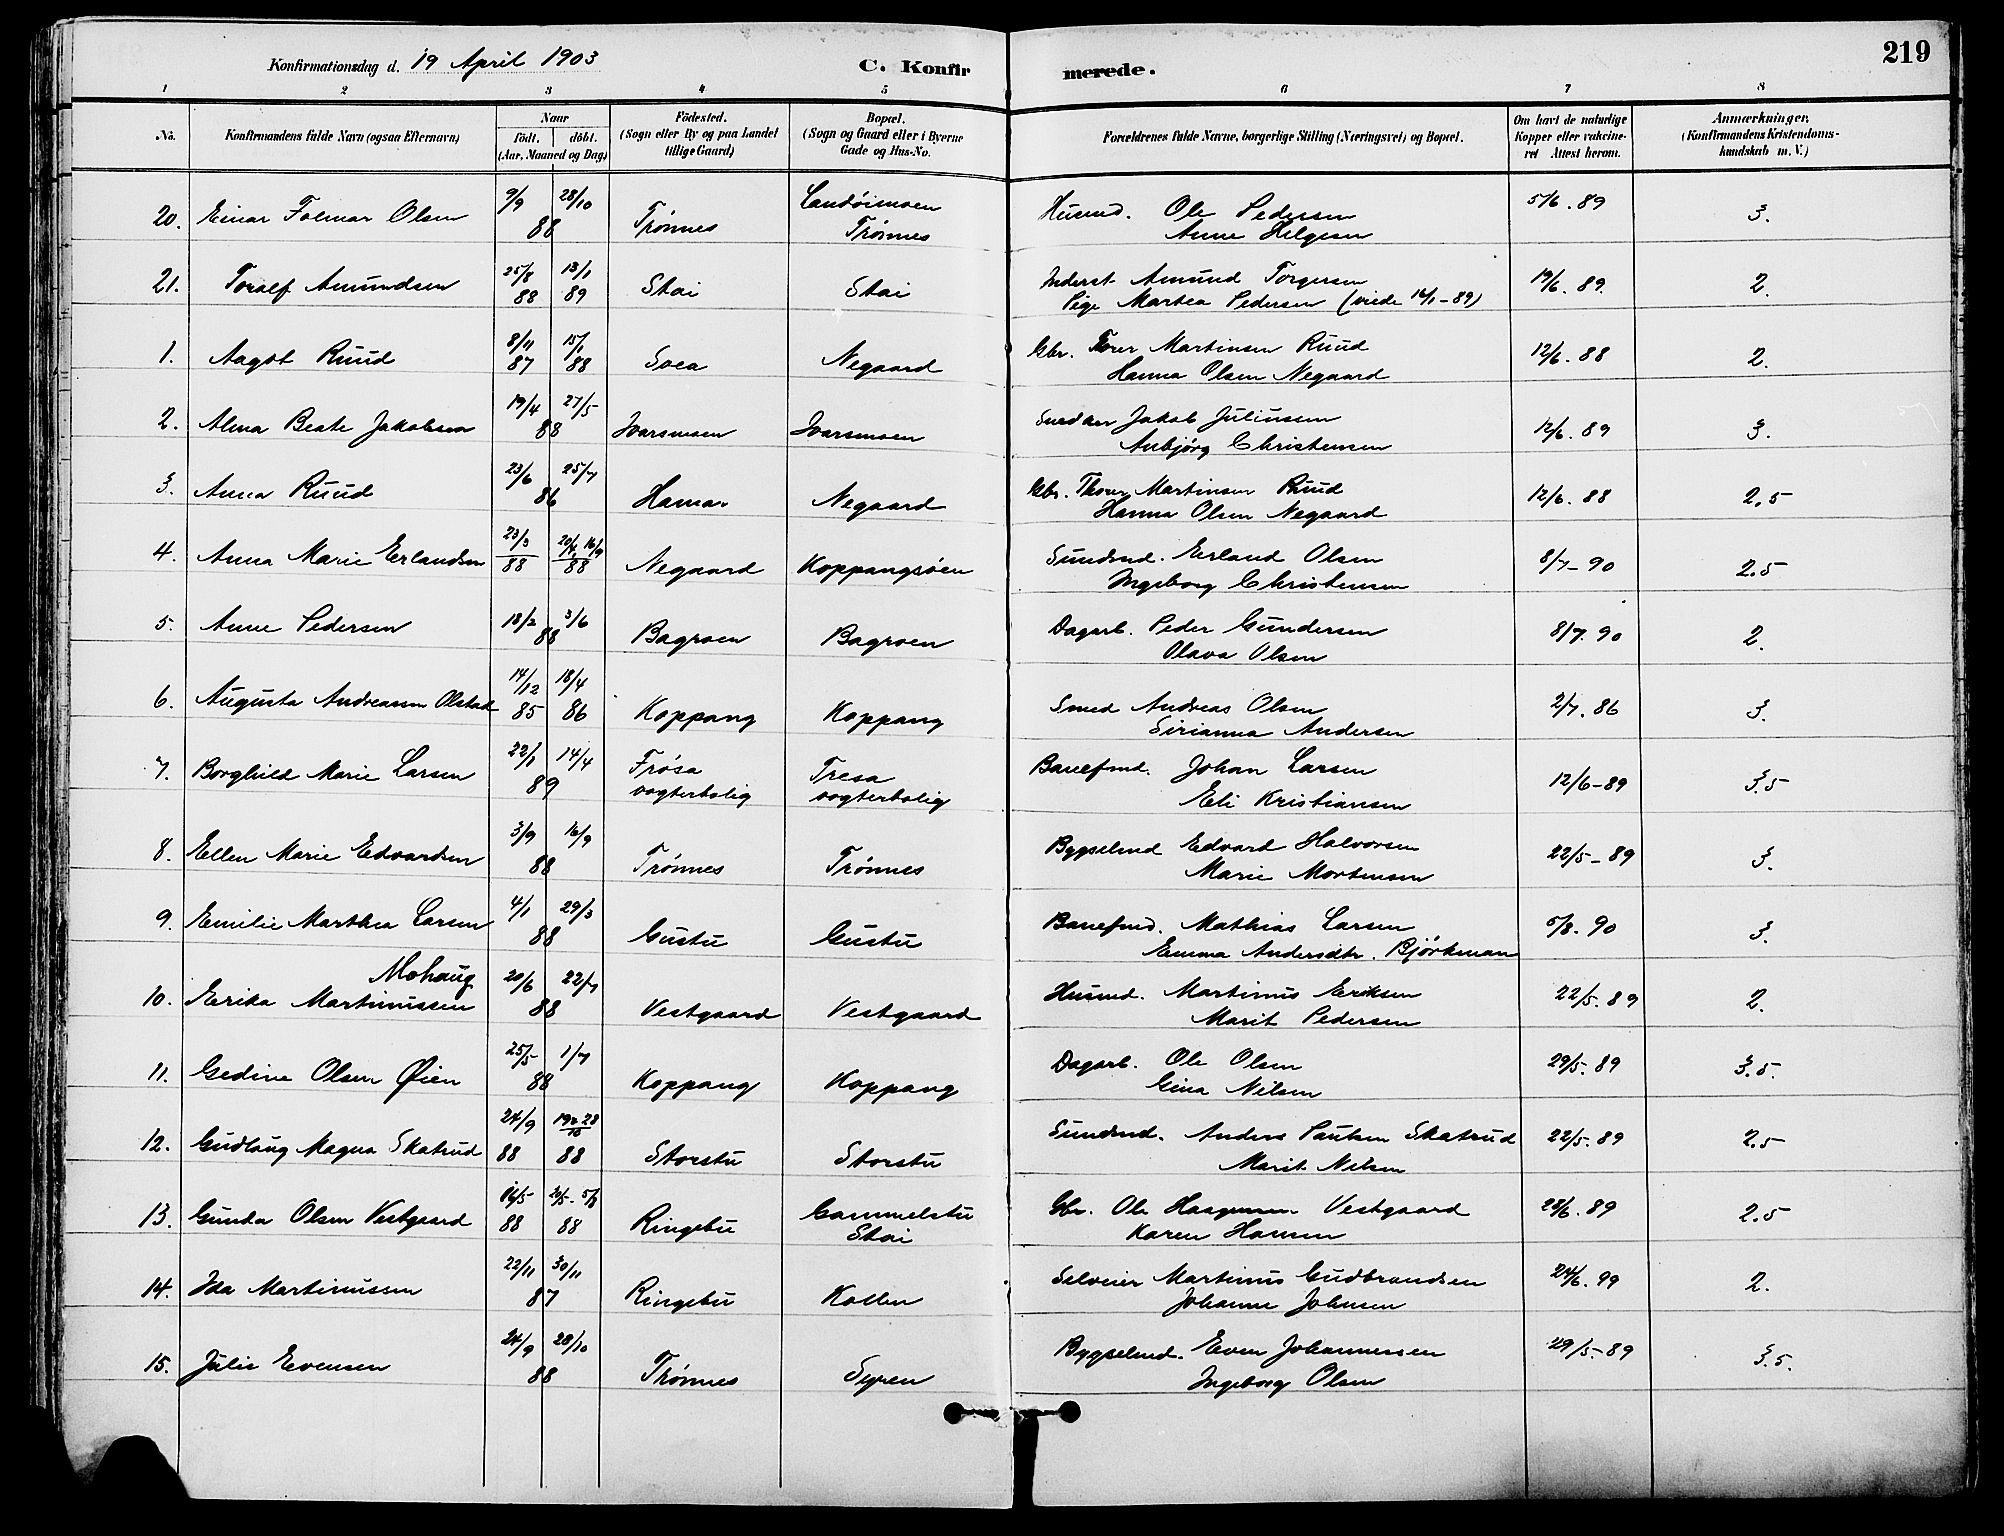 Konfirmationsdag d. 19 April 1903
C. Konfirmerede.
219
1 2 3 4 5 6 7 8
No. Konfirmandens fulde Navn (ogsaa Efternavn) Naar födt. döbt. (Aar, Maaned og Dag) Födested. (Sogn eller By og paa Landet tillige Gaard) Bopæl. (Sogn og Gaard eller i Byerne Gade og Hus-No. Forældrenes fulde Navne, borgerlige Stilling (Næringsvei) og Bopæl. Om havt de naturlige Kopper eller vakcineret Attest herom. Anmærkninger. (Konfirmandens Kristendomskundskab m. V.)
20. Einar Folmar Olsen 9/9 28/10 88 Trønnes Landøimoen Trønnes Husmd. Ole Pedersen 5/6. 89 3.
Anne Helgesen
21. Toralf Amundsen 25/8 88 13/1 89 Stai Stai Inderst Amund Torgersen 19/6. 89. 2.
Pige Martea Pedersen (viede 14/1-89)
1. Aagot Ruud 8/11 87 15/1 88 Svea Negaard Gbr. Torer Martinsen Ruud 12/6. 88 2.
Hanna Olsen Negaard
2. Alma Beate Jakobsen 19/4 27/5 88 Ivarsmoen Ivarsmoen Snedker Jakob Juliussen 12/6. 89 3.
Anbjørg Christensen
3. Anna Ruud 23/6 25/7 86 Hamar Negaard Gbr. Thorer Martinsen Ruud 12/6. 88 2.5
Hanna Olsen Negaard
4. Anna Marie Erlandsen 23/3 88 20/4 16/9 88 Negaard Koppangsøen Sundmd. Erland Olsen 8/7-90 2.5
Ingeborg Christensen
5. Anne Pedersen 18/2 3/6 88 Bagroen Bagroen Dagarb. Peder Gundersen 8/7. 90 2.
Olava Olsen
6. Augusta Andreassen Olstad 14/12 85 18/4 86 Koppang Koppang Smed Andreas Olsen 2/7. 86 3.
Sirianna Andersen
7. Borghild Marie Larsen 22/1 14/4 89 Frøsa vogterbolig Tresa vogterbolig Banefmd. Johan Larsen 12/6-89 3.5
Eli Kristiansen
8. Ellen Marie Edvardsen 3/9 16/9 88 Trønnes Trønnes Bygselmd Edvard Halvorsen 22/5-89 3.
Marie Mortensen
9. Emilie Marthea Larsen 4/1 29/3 88 Gustu Gustu Banefmd. Mathias Larsen 5/8. 90 3.
Emma Andersdtr. Bjørkman
Mohaug
10. Erika Martinussen 20/6 22/7 88 Vestgaard Vestgaard Husmd. Martinus Eriksen 22/5. 89 2.
Marit Pedersen
11. Gedine Olsen Øien 25/5 1/7 88 Koppang Koppang Dagarb. Ole Olsen 29/5. 89 3.5.
Gina Nilsen
12. Gudlaug Magna Skatrud 24/9 88 88 Storstu Storstu Sundmd. Anders Paulsen Skatrud 22/5. 89 2.5
Marit Nilsen
13. Gunda Olsen Vestgaard 16/5 88 20/5 - 5/8 88 Ringebu Gammelstu Stai Gbr. Ole Haagensen Vestgaard 28/6. 89 2.5
Karen Hansen
14. Ida Martinussen 22/11 30/11 87 Ringebu Kollen Selveier Martinus Gudbrandsen 24/6. 99 2.
Johanne Johnsen
15. Julie Evensen 24/9 28/10 88 Trønnes Syren Bygselmd. Even Johannessen 29/5-89 3.5.
Ingeborg Olsen